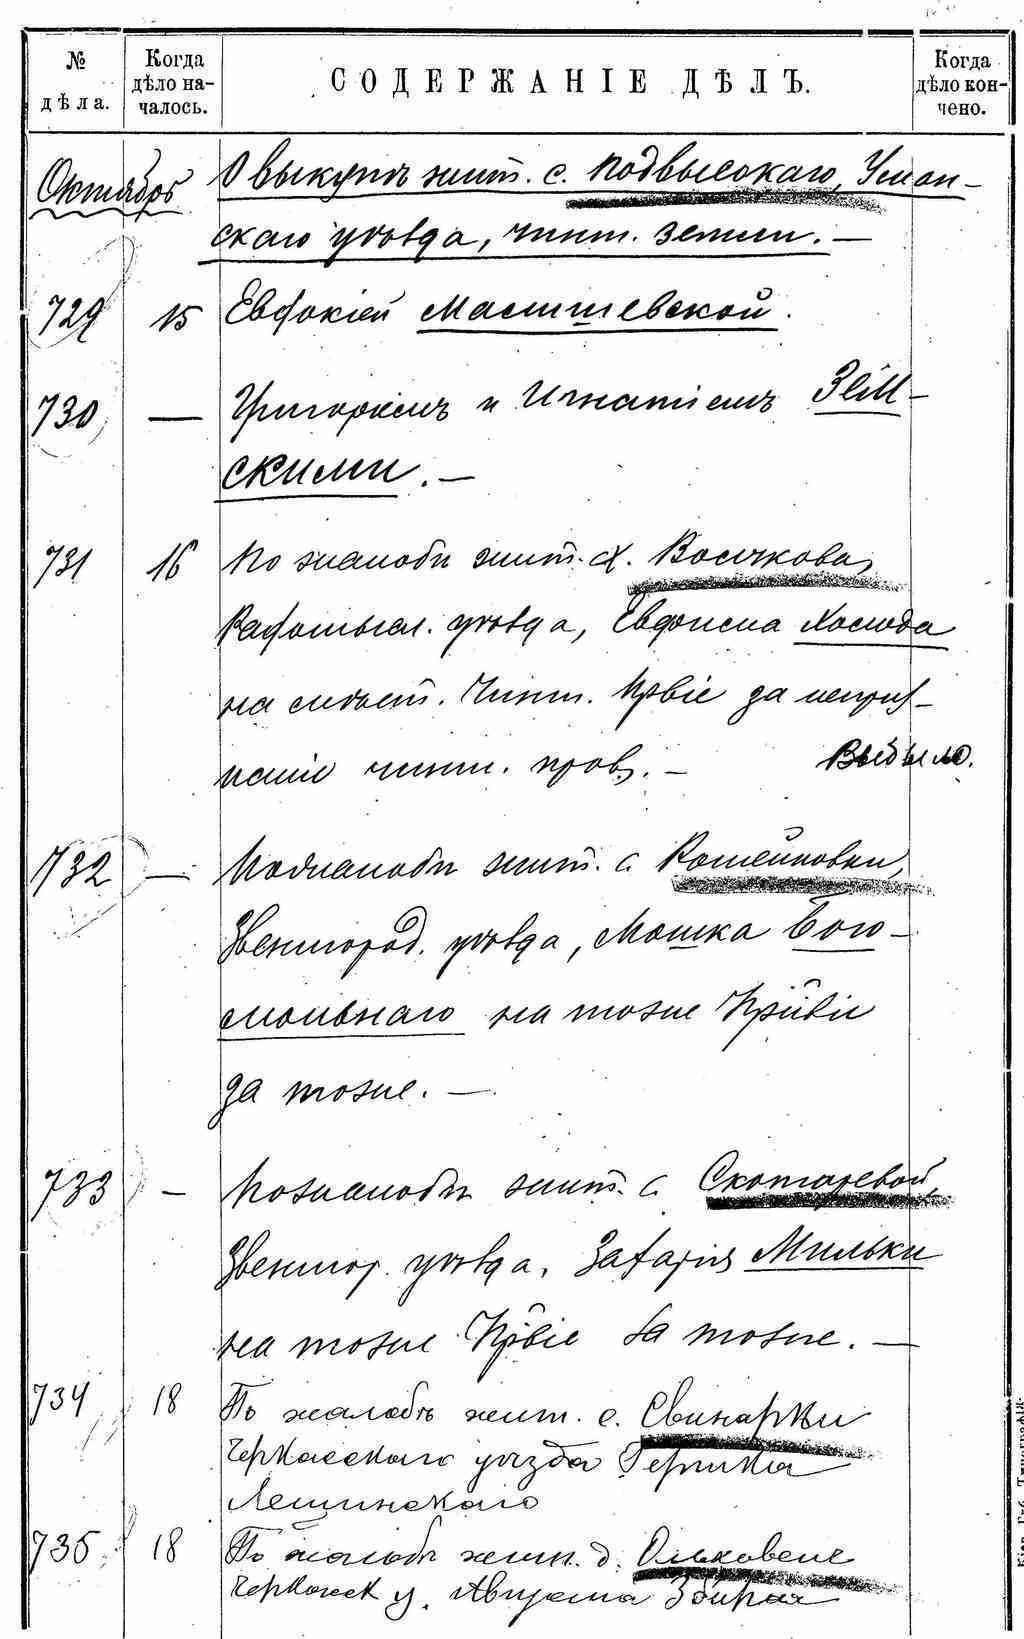 № дѣла.
Когда дѣло началось.
СОДЕРЖАНІЕ ДѢЛЪ.
Когда дѣло кончено.
Октябрь
О выкупѣ жит. с. Подвысокаго, Уман-
скаго уѣзда, чинш. земли. —
729 15 Евдокіей Малишевской.
730 — Григоріемъ и Игнатіемъ Зѣлин-
скими. —
731 16 По жалобѣ жит. с.
Радомысл. уѣзда, Холода
на . Чинш. Пр̃віе за непри-
наніе чинш. прав. — Выбыло.
732 — По жалобѣ жит. с.
Звенигород. уѣзда, Мошка Бого-
мольнаго на тоже Пр̃віе
за тоже. —
733 — По жалобѣ жит. с. Скотаревой,
Звенигор. уѣзда, Захарія Мильки
на тоже Пр̃віе за тоже. —
734 18 По жалобѣ жит. с. Свинарки
Черкасскаго уѣзда
Лещинскаго
735 18 По жалобѣ жит. д.
Черкасск у. Августа